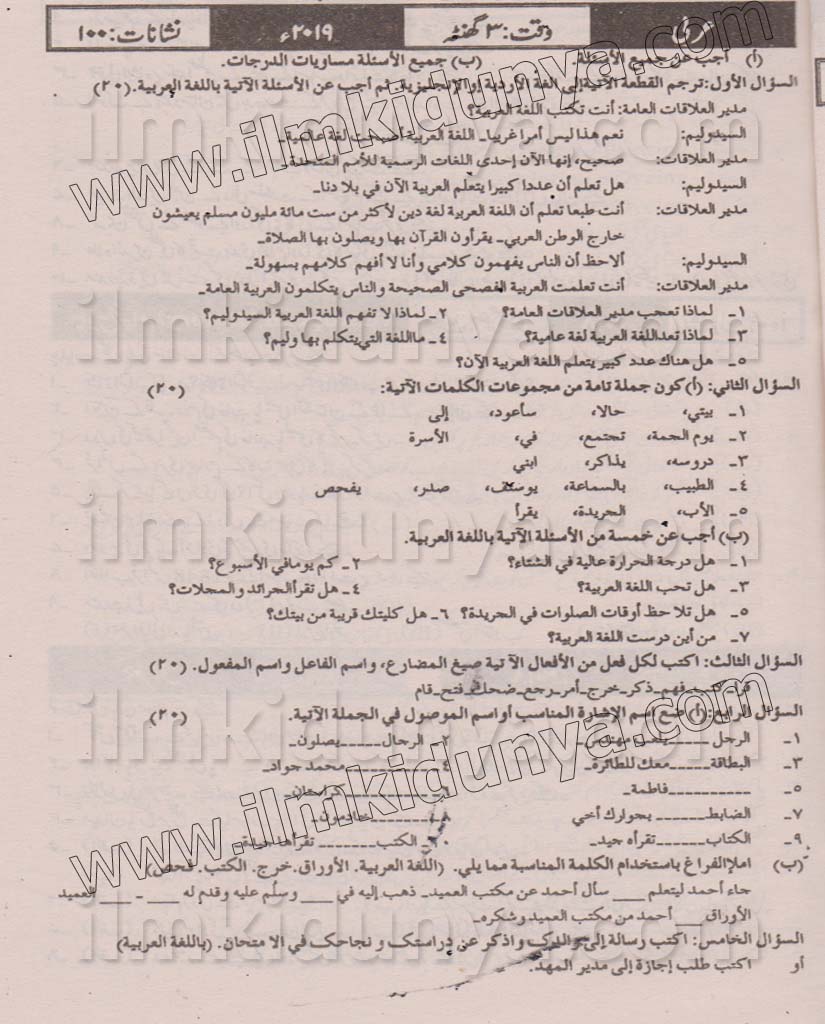 عربی وقت: ۳ گھنٹہ ۲۰۱۹ء نشانات: ۱۰۰
(أ) أجب عن جميع الأسئلة. (ب) جميع الأسئلة مساويات الدرجات.
السؤال الأول: ترجم القطعة الآتية إلى الغة الأردية إوالإنجليزية. ثم أجب عن الأسئلة الآتية باللغة العربية. (۲۰)
مدير العلاقات العامة: أنت تكتب اللغة العربية؟
السيدوليم: نعم هذا ليس أمرا غريبا۔ اللغة العربية أصبحت لغة عالمية۔
مدير العلاقات: صحيح، إنها الآن إحدى اللغات الرسمية للأمم المتحدة۔
السيدوليم: هل تعلم أن عددا كبيرا يتعلم العربية الآن في بلا دنا۔
مدير العلاقات: أنت طبعا تعلم أن اللغة العربية لغة دين لأكثر من ست مائة مليون مسلم يعيشون
خارج الوطن العربي۔ يقرأون القرآن بها ويصلون بها الصلاة۔
السيدوليم: ألاحظ أن الناس يفهمون كلامي وأنا لا أفهم كلامهم بسهولة۔
مدير العلاقات: أنت تعلمت العربية الفصحى الصحيحة والناس يتكلمون العربية العامة۔
۱۔ لماذا تعجب مدير العلاقات العامة؟ ۲۔ لماذا لا تفهم اللغة العربية السيدوليم؟
۳۔ لماذا تعداللغة العربية لغة عامية؟ ۴۔ مااللغة التي يتكلم بها وليم؟
۵۔ هل هناك عدد كبير يتعلم اللغة العربية الآن؟
السؤال الثاني: (أ) كون جملة تامة من مجموعات الكلمات الآتية: (۲۰)
۱۔ بيتي، حالا، سأعود، إلى
۲۔ يوم الجمة، تجتمع، في، الأسرة
۳۔ دروسه، يذاكر، ابني
۴۔ الطبيب، بالسماعة، يوسف، صدر، يفحص
۵۔ الأب، الجريدة، يقرأ
(ب) أجب عن خمسة من الأسئلة الآتية باللغة العربية.
۱۔ هل درجة الحرارة عالية في الشتاء؟ ۲۔ كم يومافي الأسبوع؟
۳۔ هل تحب اللغة العربية؟ ۴۔ هل تقرأالجرائد و المجلات؟
۵۔ هل تلا حظ أوقات الصلوات في الجريدة؟ ۶۔ هل كليتك قريبة من بيتك؟
۷۔ من أين درست اللغة العربية؟
السؤال الثالث: اكتب لكل فعل من الأفعال الآ تية صيغ المضارع، واسم الفاعل واسم المفعول. (۲۰)
قرأ۔ كتب۔ فهم۔ ذكر۔ خرج۔ أمر۔ رجع۔ ضحك۔ فتح۔ قام
السؤال الرابع: (أ) ضع اسم الإشارة المناسب أواسم الموصول في الجملة الآتية. (۲۰)
۱۔ الرجل _____ مهندس۔ ۲۔ الرجال _____ يصلون۔
۳۔ البطاقة _____ معك للطائرة۔ ۴۔ _____ محمد جواد۔
۵۔ _____ فاطمة۔ _____ كراستان۔
۷۔ الضابط _____ بجوارك أخي ۸۔ _____ خادمون۔
۹۔ الكتاب _____ تقرأه جيد۔ ۱۰۔ الكتب _____ تقرأها
(ب) املإالفراغ باستخدام الكلمة المناسبة مما يلي. (اللغة العربية. الأوراق. خرج. الكتب. فحص)
جاء أحمد ليتعلم ___ سأل أحمد عن مكتب العميد۔ ذهب إليه في ___ وسلم عليه وقدم له ___ ۔ ___ العميد
الأوراق ___ أحمد من مكتب العميد وشكره۔
السؤال الخامس: اكتب رسالة إلى والدك واذكر عن دراستك و نجاحك في الا متحان. (باللغة العربية)
أو اكتب طلب إجازة إلى مدير المهد.
www.ilmkidunya.com
ilmkidunya.com
ilmkidunya.com
ilmkidunya.com
www.ilmkidunya.com
ilmkidunya.com
ilmkidunya.com